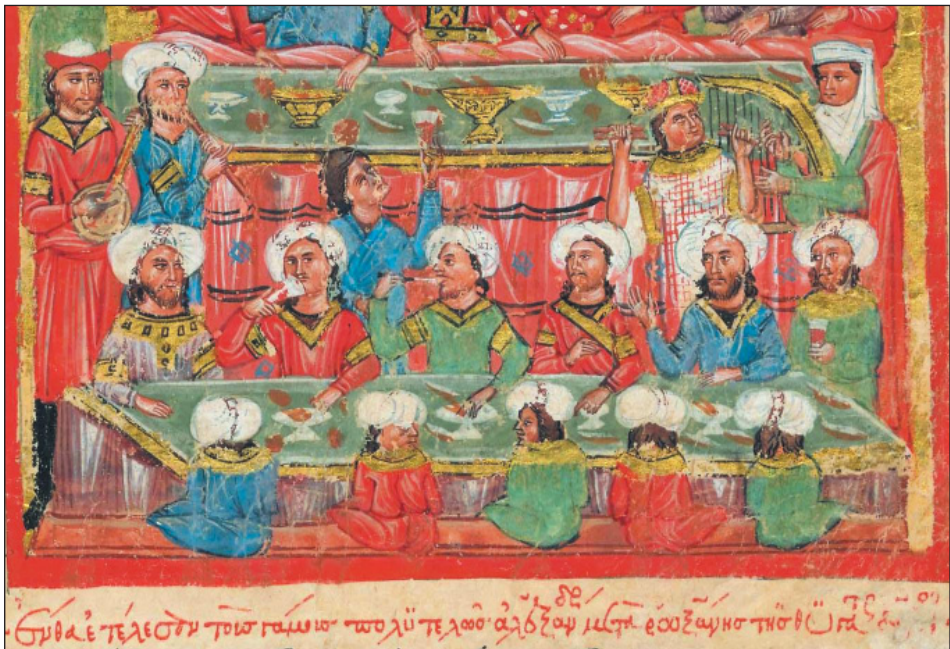 Ἔνθα ἐτέλεσεν τοὺς γάμους πολϋτελῶς ἀλέξανδρ μετὰ ῥουξάνης τῆς θϋγατρ